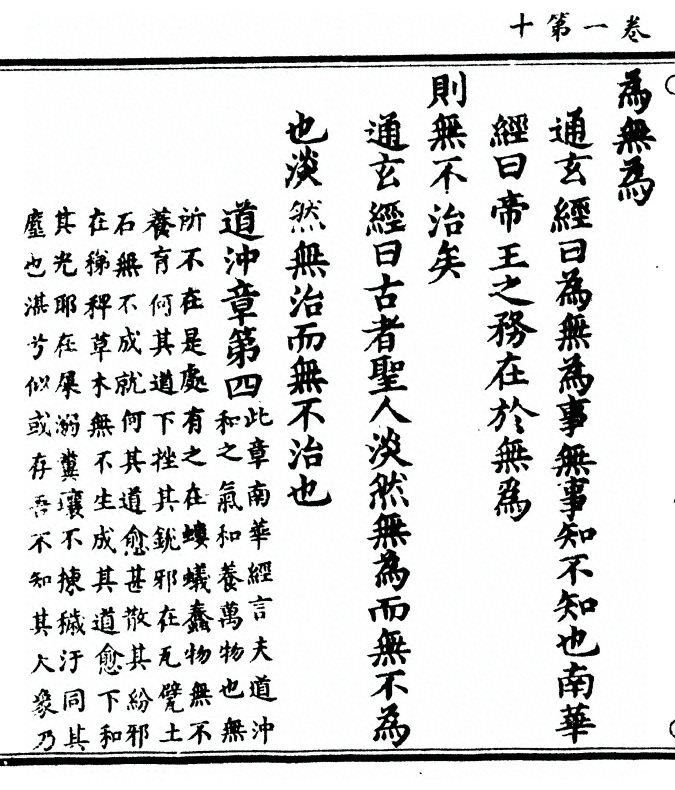 卷一第十
為無為
通玄經曰為無為事無事知不知也南華
經曰帝王之務在於無為
則無不治矣
通玄經曰古者聖人淡然無為而無不為
也淡然無治而無不治也
道沖章第四
此章南華經言夫道沖
和之氣和養萬物也無
所不在是處有之在螻蟻蠢物無不
養育何其道下挫其銳邪在瓦甓土
石無不成就何其道愈甚散其紛邪
在稊稗草木無不生成其道愈下和
其光耶在屎溺糞壤不揀穢汙同其
塵也湛兮似或存吾不知其人象乃